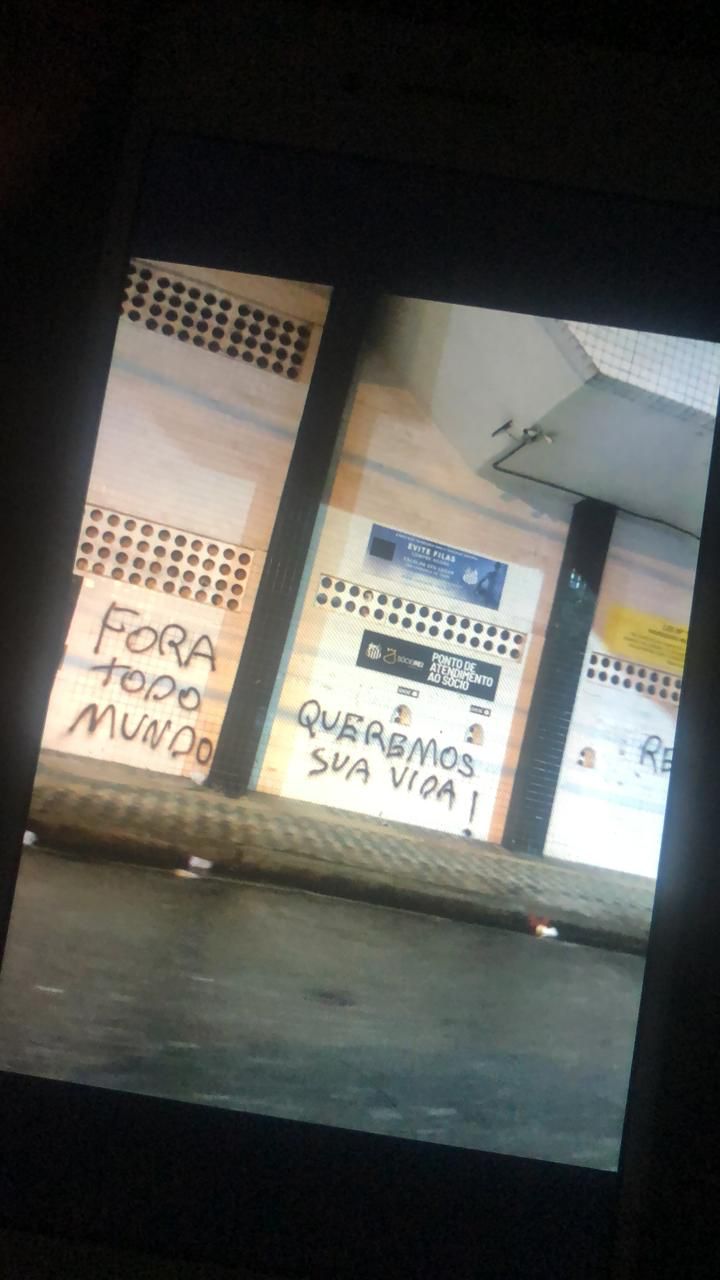 FORA
TODO
MUNDO
EVITE FILAS
SÓCIO REI
PONTO DE
ATENDIMENTO
AO SÓCIO
QUEREMOS
SUA VIDA!
RE